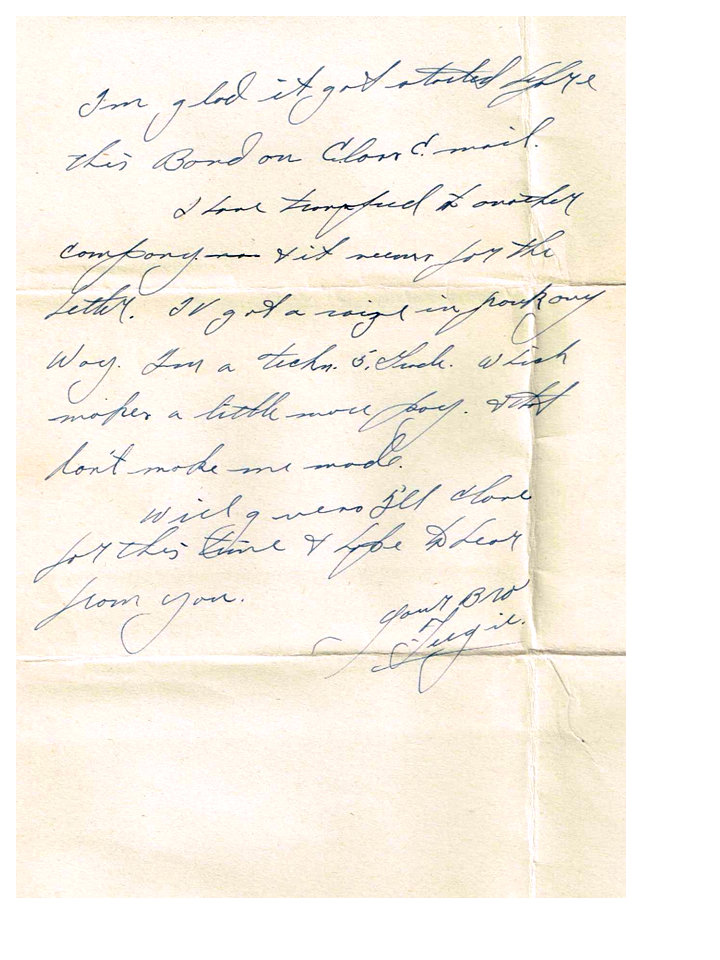 I'm glad it got started before
this Band on Class C. mail.
I have transfued to another
company & it seems for the
better. I'V got a raize in pay
Way. I'm a techn. 5. Grade. which
makes a little more pay. & that
don't make me made.
Will g I'll close
for this time & hope to hear
from you.
your Bro